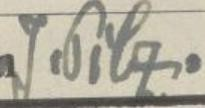 J. Pilz.